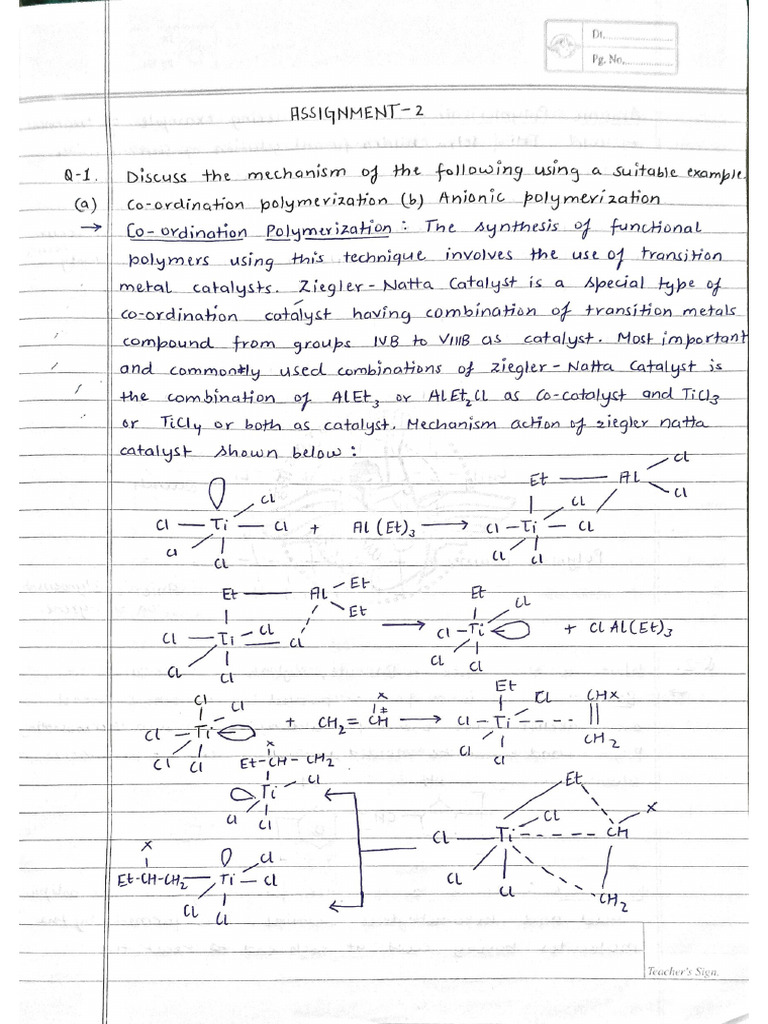 Dt.
Pg. No.
ASSIGNMENT-2
Q-1. Discuss the mechanism of the following using a suitable example.
(a) Co-ordination polymerization (b) Anionic polymerization
→ Co-ordination Polymerization : The synthesis of functional
polymers using this technique involves the use of transition
metal catalysts. Ziegler-Natta Catalyst is a special type of
co-ordination catalyst having combination of transition metals
compound from groups IVB to VIIIB as catalyst. Most important
and commonly used combinations of ziegler-Natta Catalyst is
the combination of AlEt3 or AlEt2Cl as Co-catalyst and TiCl3
or TiCl4 or both as catalyst. Mechanism action of ziegler natta
catalyst shown below :
Et Al Cl
Cl Cl Cl
Cl — Ti — Cl + Al(Et)3 → Cl — Ti — Cl
Cl Cl Cl Cl
Et Al Et Et Et Cl
Cl — Ti Cl Cl → Cl — Ti + ClAl(Et)3
Cl Cl Cl Cl
Cl Cl x Et Cl CHX
Cl — Ti + CH2 = CH → Cl — Ti CH2
Cl Cl ± Cl
x
Et-CH-CH2 Et
Ti Cl x
Cl Cl Cl Ti Cl CH
x
Et-CH-CH2 — Ti Cl Cl Cl Cl CH2
Cl Cl
Teacher's Sign.